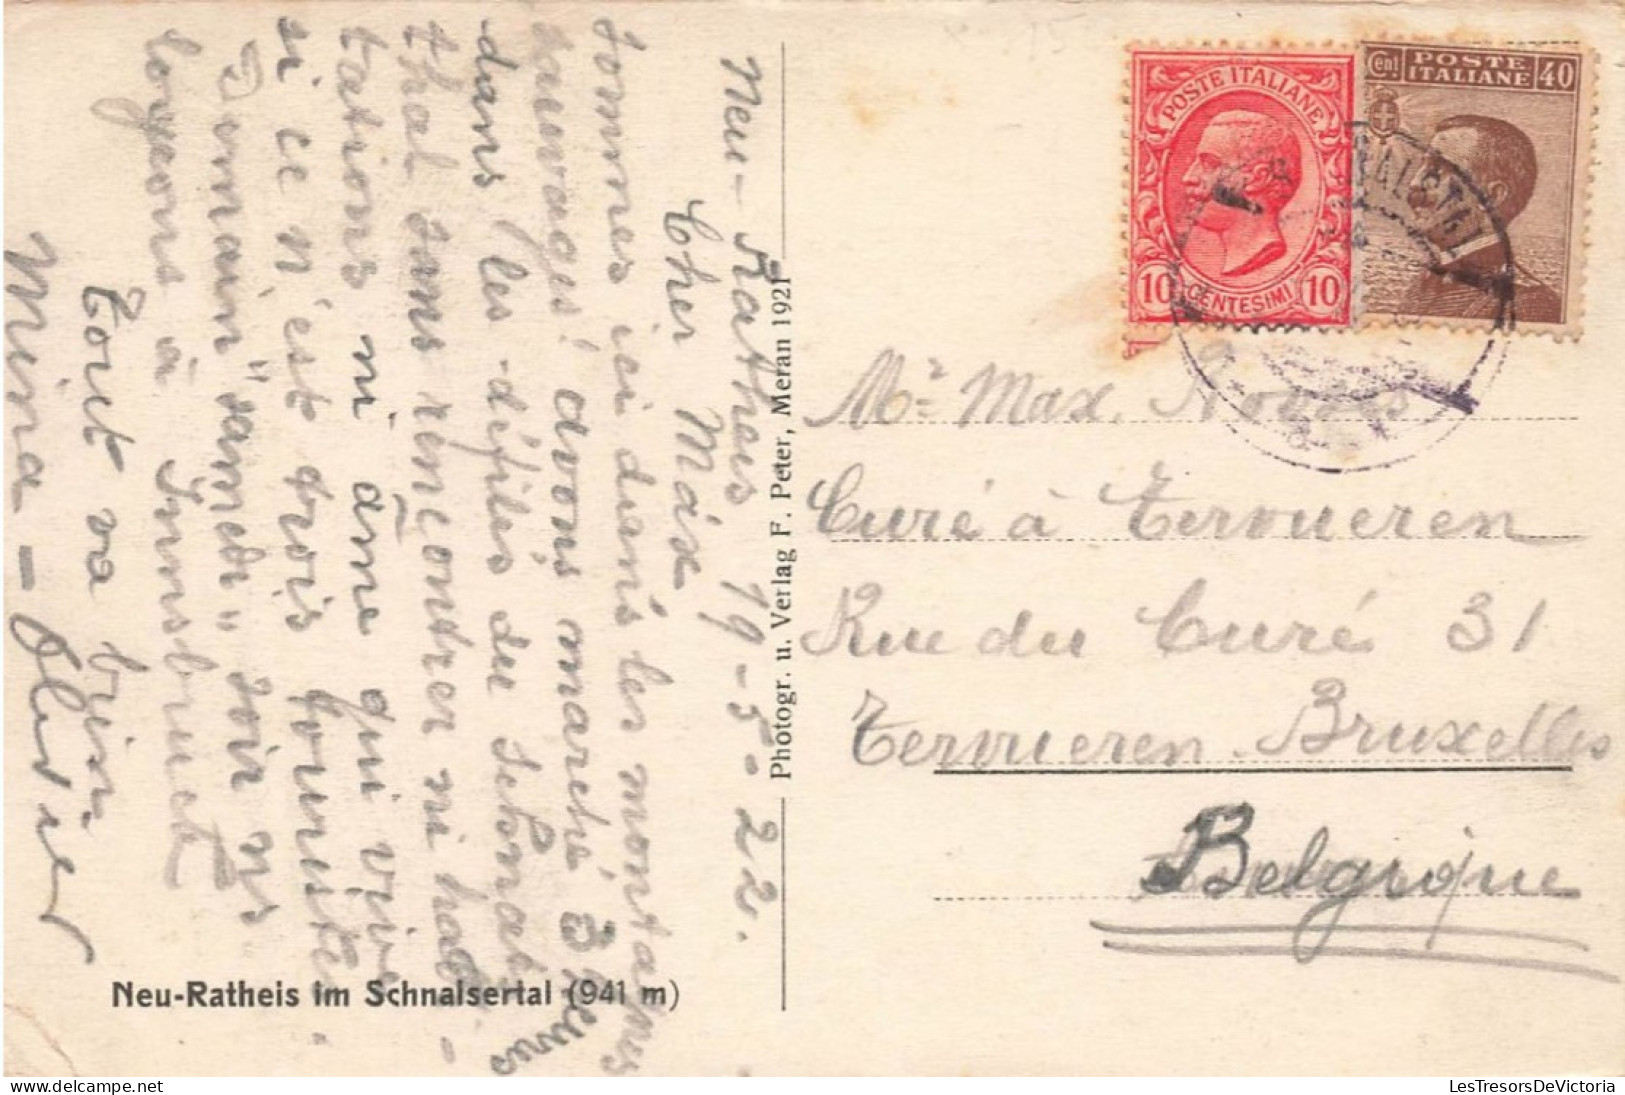 Neu-Ratheis 19-5-22.
Cher Max
Sommes ici dans les montagnes
sauvages! avons marché 3 heures
dans les défilés du Schnals
thal sans rencontrer ni habi-
tations ni âme qui vive
si ce n'est trois touristes.
Demain "samedi" soir ns
logeons à Innsbruck
Tout va bien.
Mina - Olivier
Neu-Ratheis im Schnalsertal (941 m)
Photogr. u. Verlag F. Peter, Meran 1921
POSTE ITALIANE
10 CENTESIMI 10
Cent POSTE ITALIANE 40
Mr Max.
Curé à Tervueren
Rue du Curé 31
Tervueren Bruxelles
Belgique
LesTresorsDeVictoria